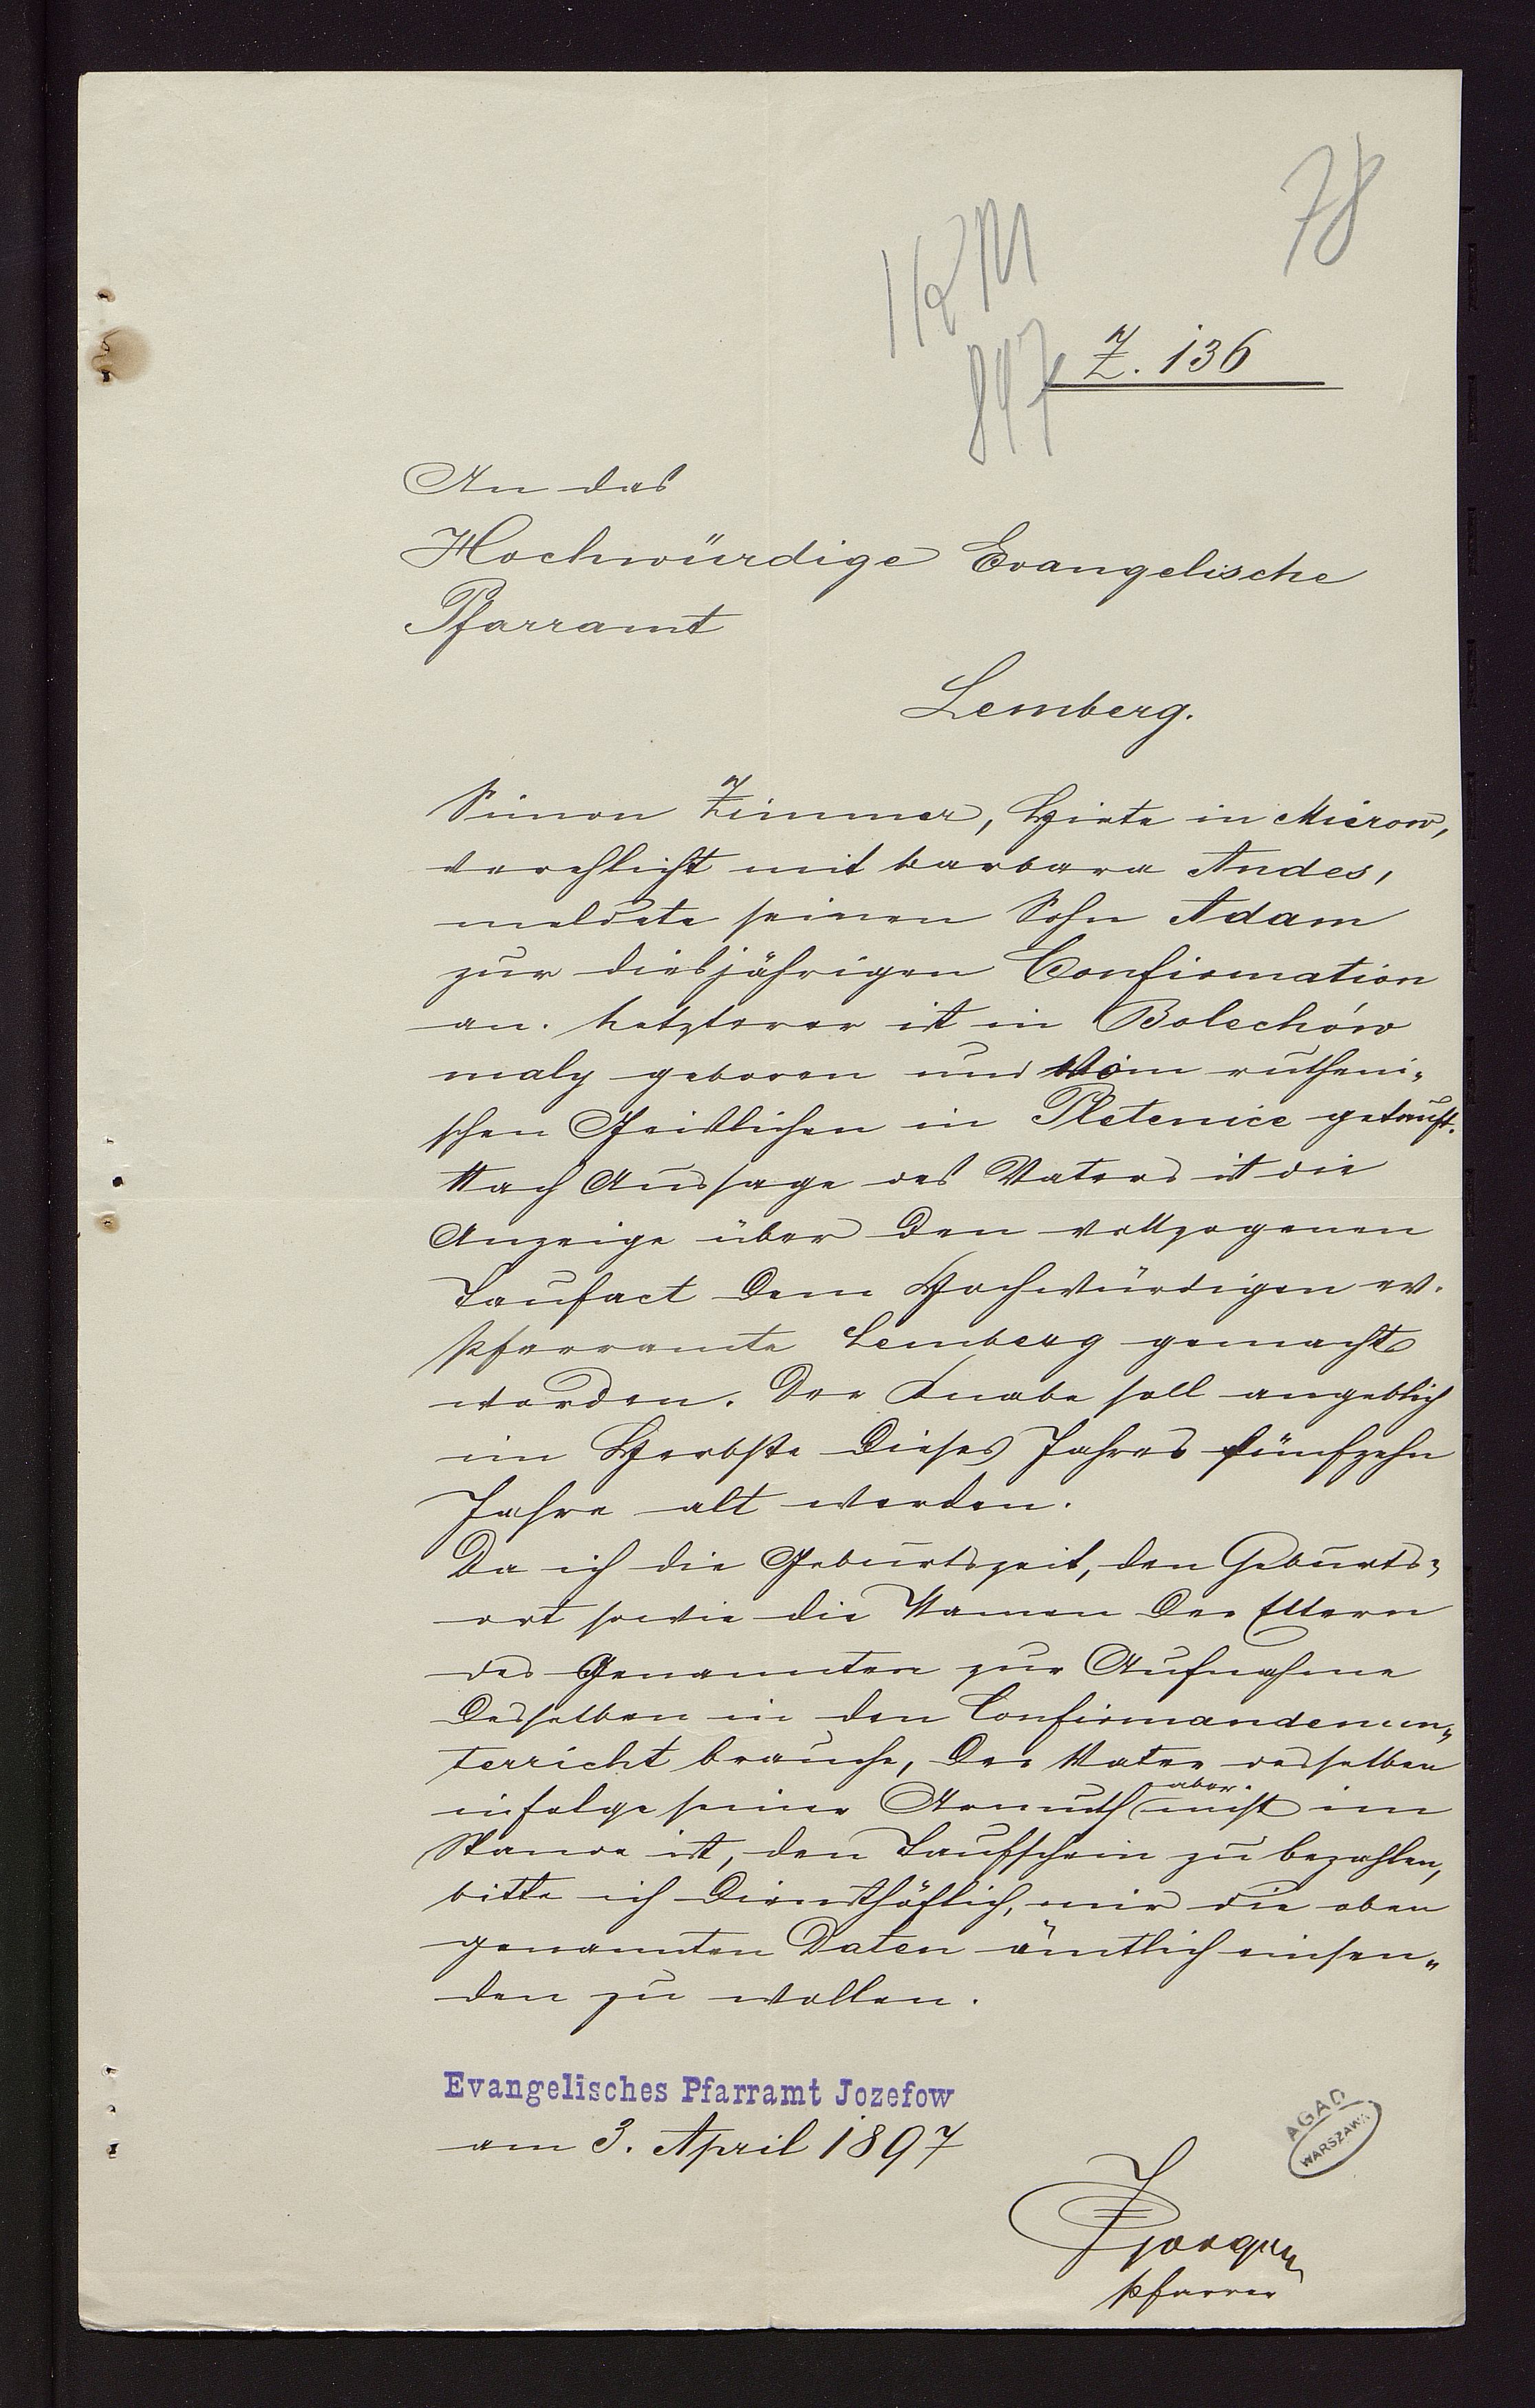 78
IKM
897
Z. 136
An das
Hochwürdige Evangelische
Pfarramt
Lemberg.
Simon Zimmer, Hirte in Mierow,
verehlicht mit Barbara Andes,
meldete seinen Sohn Adam
zur diesjährigen Confirmation
an. Letzterer ist in Bolechów
maly geboren und vom rutheni-
schen Geistlichen in Pletenice getauft.
Nach Aussage des Vaters ist die
Anzeige über den vollzogenen
Taufact dem Hochwürdigen ev.
Pfarramte Lemberg gemacht
worden. Der Knabe soll angeblich
im Herbste dieses Jahres fünfzehn
Jahre alt werden.
Da ich die Geburtszeit, den Geburts-
ort sowie die Namen der Eltern
des Genannten zur Aufnahme
desselben in den Confirmandenun-
terricht brauche, der Vater desselben
infolge seiner Armuth aber nicht im
Stande ist, den Taufschein zu bezahlen,
bitte ich diensthöflich, mir die oben
genannten Daten ämtlich einsen-
den zu wollen.
Evangelisches Pfarramt Jozefow
am 3. April 1897
AGAD
WARSZAWA
Pfarrer